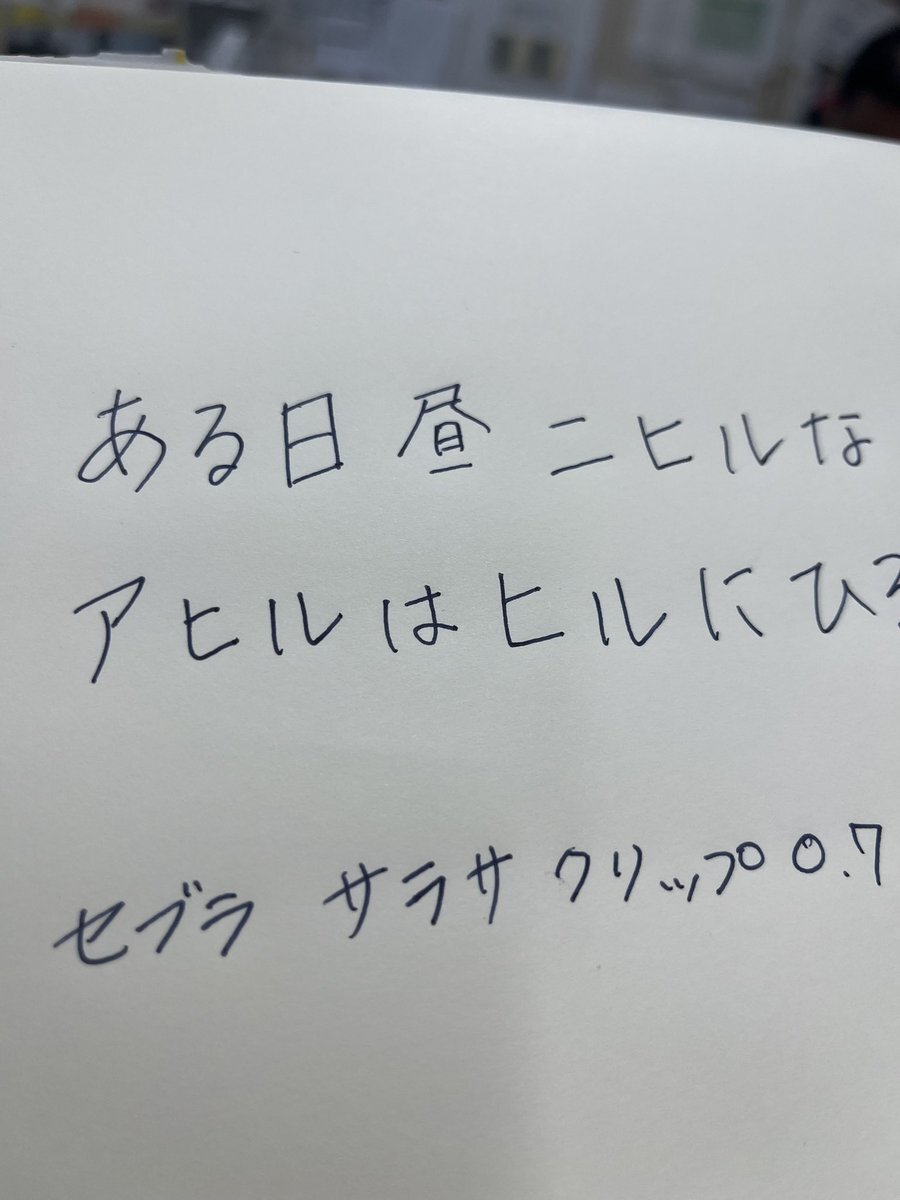 ある日 昼 ニヒルな
アヒルはヒルにひ
セブラ サラサ クリップ 0.7